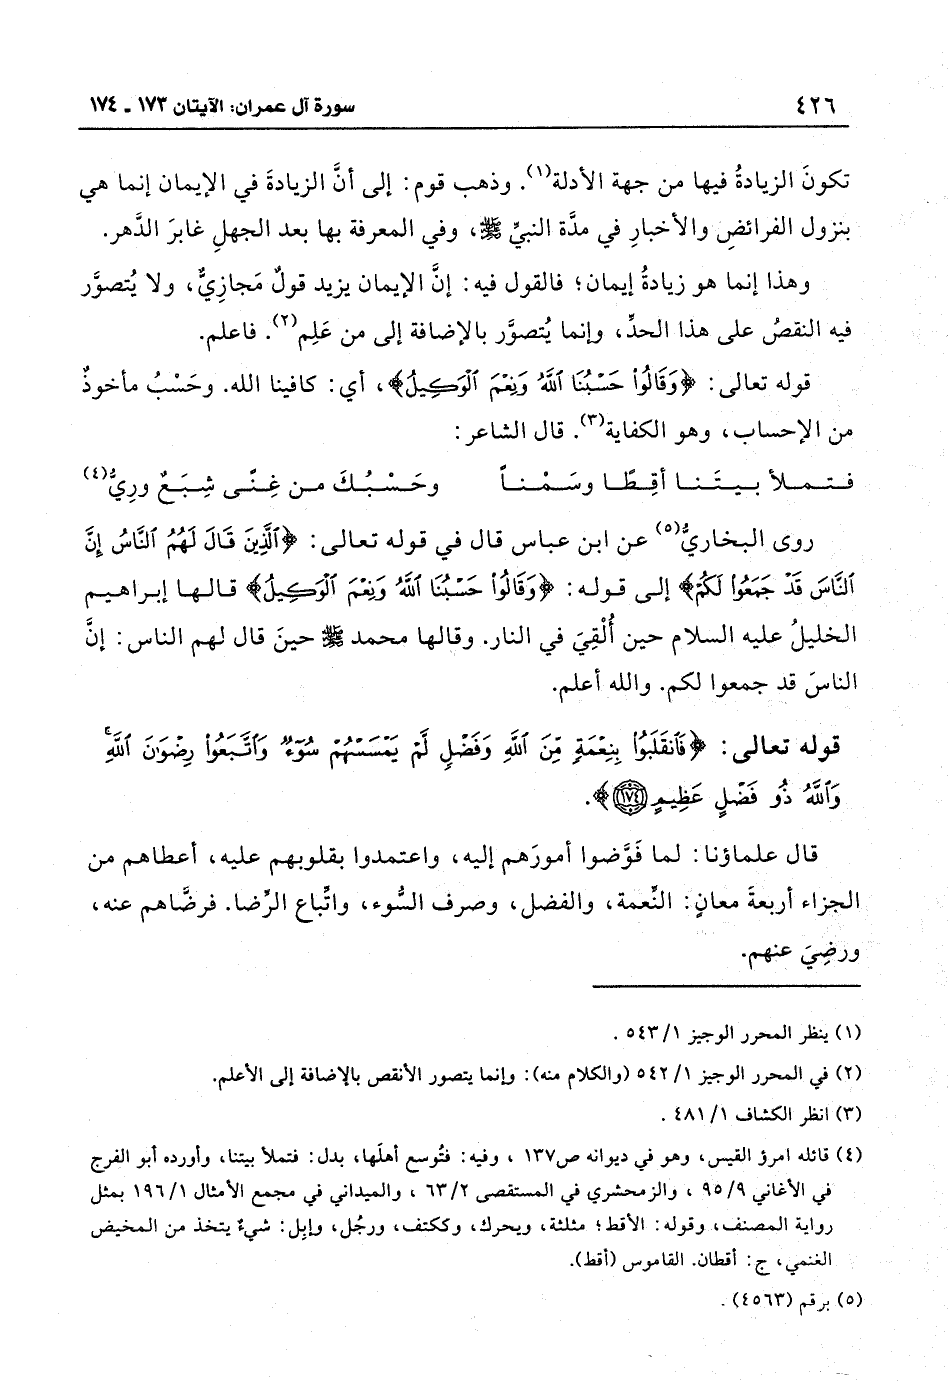 ٤٢٦
سورة آل عمران: الآيتان ١٧٣ ـ ١٧٤
تكونَ الزيادةُ فيها من جهة الأدلة(١). وذهب قوم: إلى أنَّ الزيادةَ في الإيمان إنما هي
بنزول الفرائضِ والأخبارِ في مدَّة النبيِّ ﷺ، وفي المعرفة بها بعد الجهلِ غابرَ الدَّهر.
وهذا إنما هو زيادةُ إيمان؛ فالقول فيه: إنَّ الإيمان يزيد قولٌ مَجازيٌّ، ولا يُتصوَّر
فيه النقصُ على هذا الحدِّ، وإنما يُتصوَّر بالإضافة إلى من عَلِم(٢). فاعلم.
قوله تعالى: ﴿وَقَالُوا۟ حَسْبُنَا ٱللَّهُ وَنِعْمَ ٱلْوَكِيلُ﴾، أي: كافينا الله. وحَسْبُ مأخوذٌ
من الإحساب، وهو الكفاية(٣). قال الشاعر:
فـتـمـلأ بـيـتَـنـا أقِـطًـا وسَـمْـنـاً وحَـسْـبُـكَ مـن غِـنًـى شِـبَـعٌ ورِيُّ(٤)
روى البخاريُّ(٥) عن ابن عباس قال في قوله تعالى: ﴿ٱلَّذِينَ قَالَ لَهُمُ ٱلنَّاسُ إِنَّ
ٱلنَّاسَ قَدْ جَمَعُوا۟ لَكُمْ﴾ إلى قوله: ﴿وَقَالُوا۟ حَسْبُنَا ٱللَّهُ وَنِعْمَ ٱلْوَكِيلُ﴾ قالها إبراهيم
الخليلُ عليه السلام حين أُلْقِيَ في النار. وقالها محمد ﷺ حينَ قال لهم الناس: إنَّ
الناسَ قد جمعوا لكم. والله أعلم.
قوله تعالى: ﴿فَٱنقَلَبُوا۟ بِنِعْمَةٍ مِّنَ ٱللَّهِ وَفَضْلٍ لَّمْ يَمْسَسْهُمْ سُوٓءٌ وَٱتَّبَعُوا۟ رِضْوَٰنَ ٱللَّهِ ۗ
وَٱللَّهُ ذُو فَضْلٍ عَظِيمٍ ١٧٤﴾.
قال علماؤنا: لما فَوَّضوا أمورَهم إليه، واعتمدوا بقلوبهم عليه، أعطاهم من
الجزاء أربعةَ معانٍ: النِّعمة، والفضل، وصرف السُّوء، واتِّباع الرِّضا. فرضَّاهم عنه،
ورضِيَ عنهم.
(١) ينظر المحرر الوجيز ١/ ٥٤٣ .
(٢) في المحرر الوجيز ١/ ٥٤٢ (والكلام منه): وإنما يتصور الأنقص بالإضافة إلى الأعلم.
(٣) انظر الكشاف ١/ ٤٨١ .
(٤) قائله امرؤ القيس، وهو في ديوانه ص١٣٧ ، وفيه: فتُوسع أهلَها، بدل: فتملأ بيتنا، وأورده أبو الفرج
في الأغاني ٩/ ٩٥ ، والزمخشري في المستقصى ٢/ ٦٣ ، والميداني في مجمع الأمثال ١/ ١٩٦ بمثل
رواية المصنف، وقوله: الأقط؛ مثلثة، ويحرك، وككتف، ورجُل، وإبِل: شيءٌ يتخذ من المخيض
الغنمي، ج: أقطان. القاموس (أقط).
(٥) برقم (٤٥٦٣) .